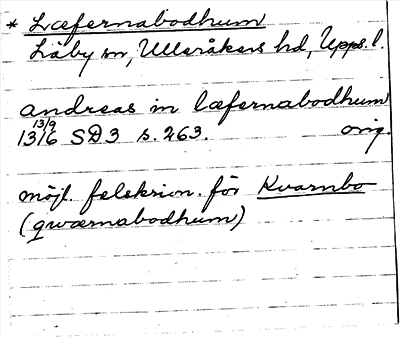 * Læfernabodhum
Läby sn, Ulleråkers hd, Upps. l.
andreas in læfernabodhum
13/9
1316 SD3 s. 263. orig.
möjl. felskrivn. för Kvarnbo
(qwærnabodhum)